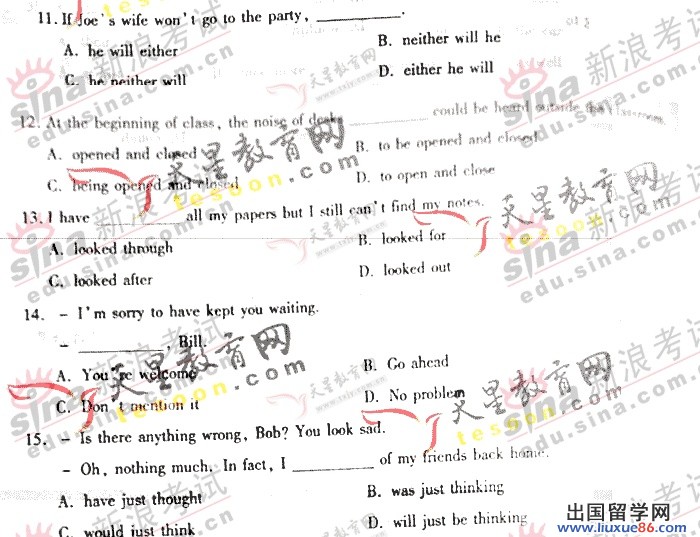 11. If Joe's wife won't go to the party, ________.
A. he will either
B. neither will he
C. he neither will
D. either he will
12. At the beginning of class, the noise of desks ________ could be heard outside the classroom.
A. opened and closed
B. to be opened and closed
C. being opened and closed
D. to open and close
13. I have ________ all my papers but I still can't find my notes.
A. looked through
B. looked for
C. looked after
D. looked out
14. – I'm sorry to have kept you waiting.
– ________, Bill.
A. You're welcome
B. Go ahead
C. Don't mention it
D. No problem
15. – Is there anything wrong, Bob? You look sad.
– Oh, nothing much. In fact, I ________ of my friends back home.
A. have just thought
B. was just thinking
C. would just think
D. will just be thinking
sina新浪考试
edu.sina.com.cn
天星教育网
tesoon.com
出国留学网
www.liuxue86.com